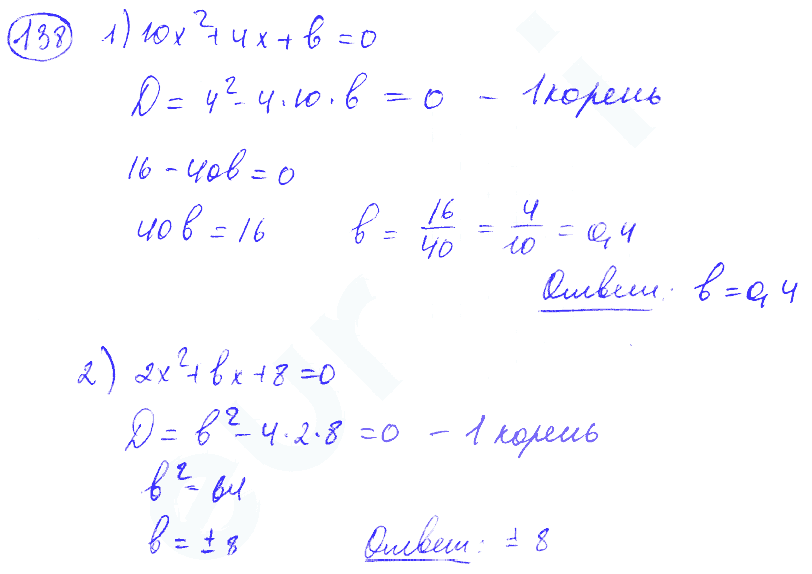 138 1) 10x²+4x+b=0
D=4²-4·10·b=0 - 1 корень
16-40b=0
40b=16 b=16/40=4/10=0,4
Ответ: b=0,4
2) 2x²+bx+8=0
D=b²-4·2·8=0 - 1 корень
b²=64
b=±8 Ответ: ±8